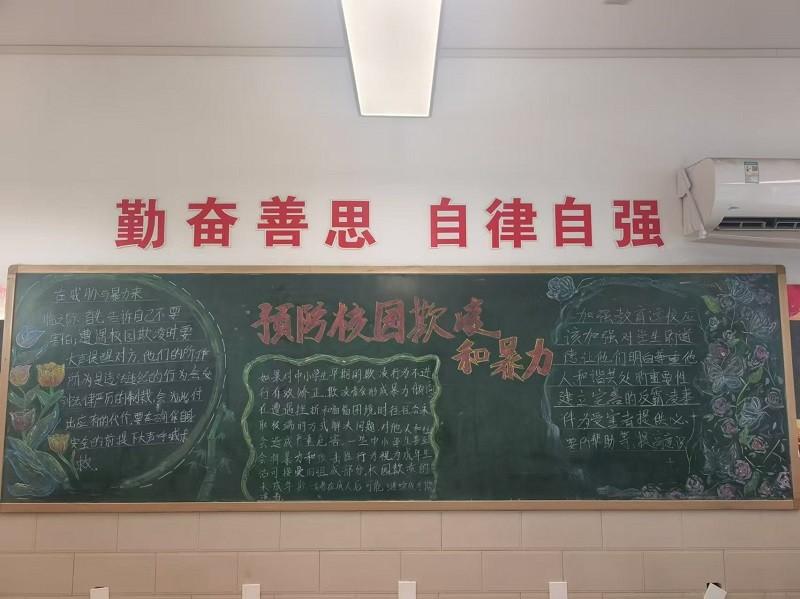 勤奋善思 自律自强
预防校园欺凌
和暴力
在威胁与暴力来
临之际,首先告诉自己不要
害怕,遭遇校园欺凌时要
大声提醒对方,他们的所作
所为是违法违纪的行为会受
到法律严厉的制裁,会为此付
出应有的代价,要在确保
安全的前提下大声呼喊求
救。
如果对中小学生早期欺凌行为不进
行有效矫正,欺凌者会形成暴力倾向
在遭遇挫折和困境时往往会采
取极端的方式解决问题,对他人和社
会造成严重危害。一些中小学生甚至
会将暴力和攻击性行为视为成年生
活可接受的组成部分,校园欺凌的
未成年
加强教育学校应
该加强对学生的道
德让他们明白尊重他
人和谐共处的重要性
建立完善的反霸凌
为受害者提供心
要的帮助等,提高意识